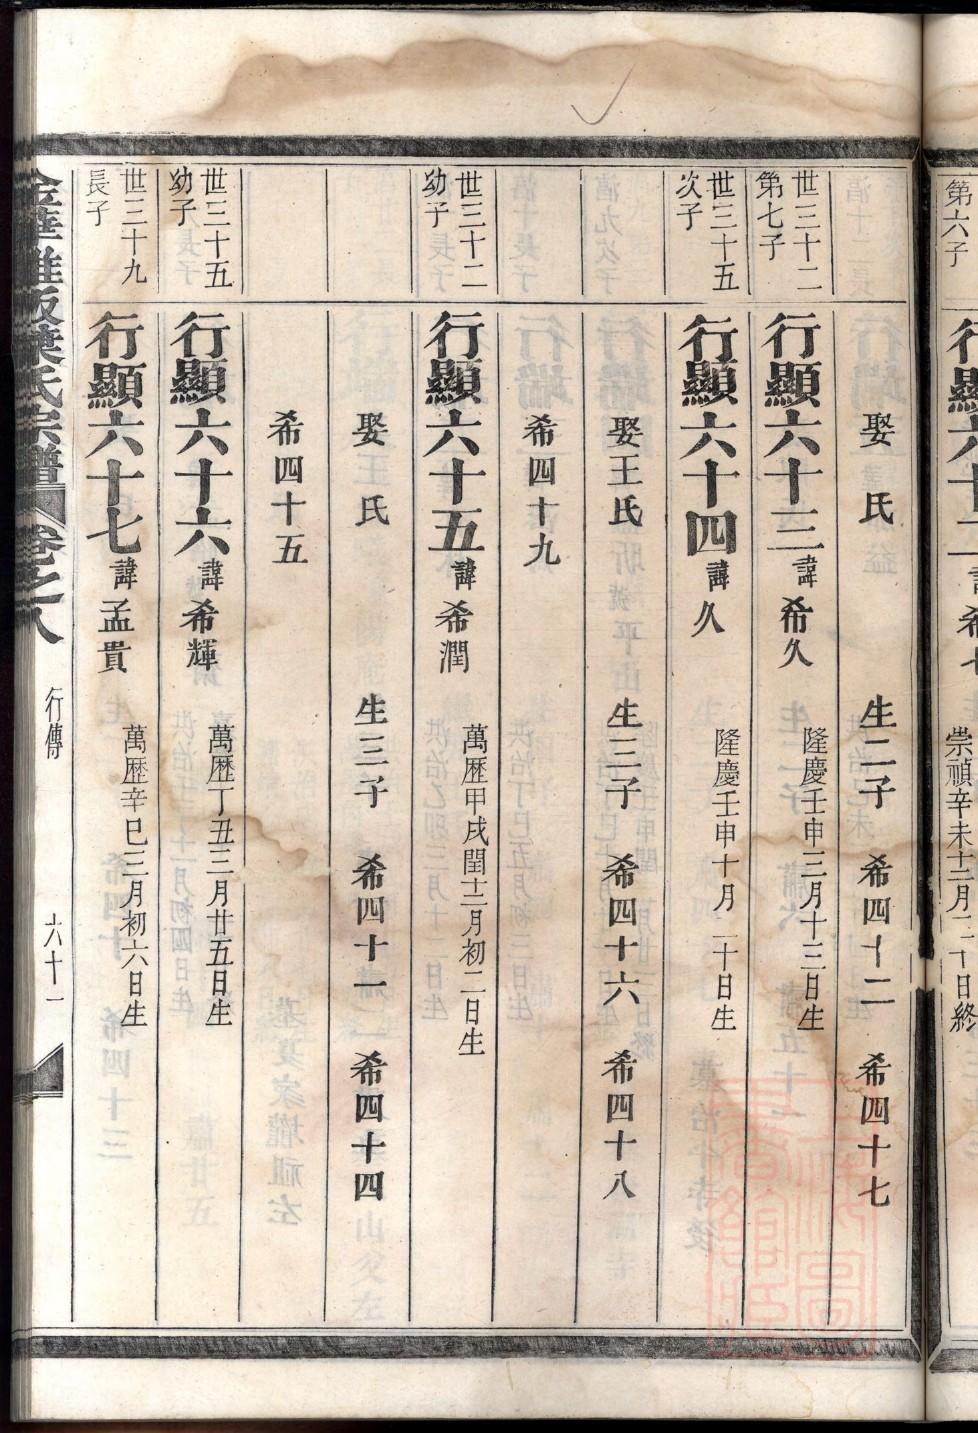 第六子
行顯六十二 諱 希七
崇禎辛未十二月二十日終
娶 氏 生二子 希四十二 希四十七
世三十二
第七子
行顯六十三 諱 希久 隆慶壬申三月十三日生
世三十五
次子
行顯六十四 諱 久 隆慶壬申十月二十日生
娶王氏 生三子 希四十六 希四十八
希四十九
世三十二
幼子
行顯六十五 諱 希潤 萬歷甲戌閏十二月初二日生
娶 氏 生三子 希四十一 希四十四
希四十五
世三十五
幼子
行顯六十六 諱 希輝 萬歷丁丑三月廿五日生
世三十九
長子
行顯六十七 諱 孟貴 萬歷辛巳三月初六日生
葉氏宗譜 卷之八 行傳 六十一